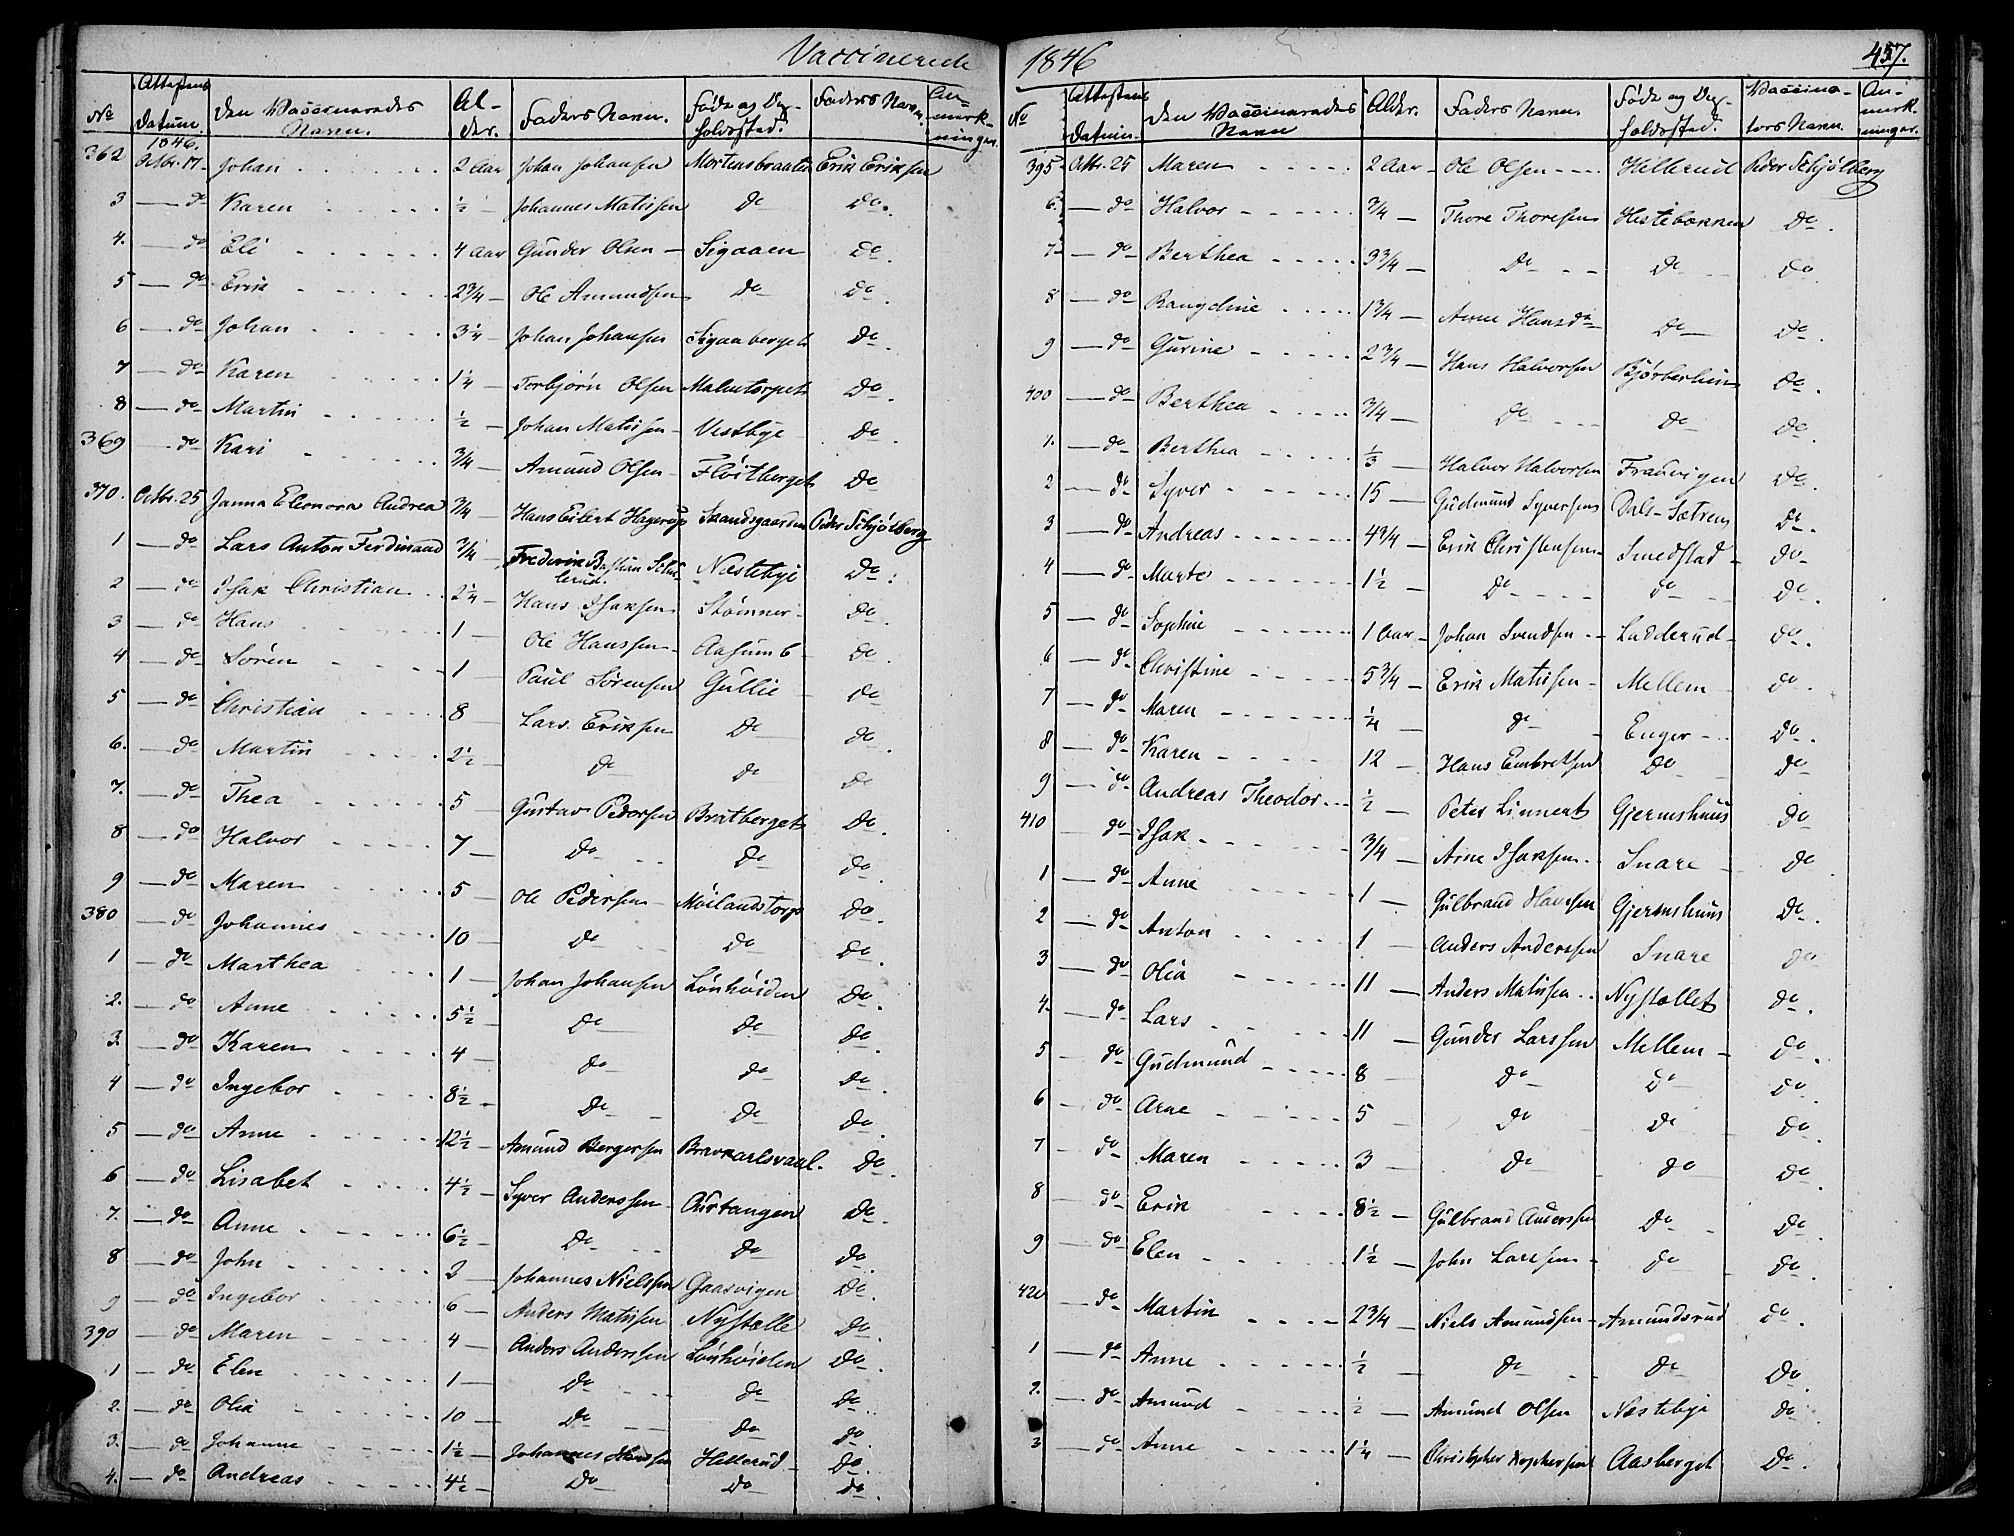 Vaccinerede
No | Attestens Datum | Den Vaccineredes Navn. | Alder. | Faders Navn. | Føde og Opholdssted. | Faders Navn. | Anmærkninger.
1846.
362 Octbr. 17 Johan 2 Aar Johan Johansen Mortensbraaten Erik Eriksen
3 — do Karen ½ — Johannes Matissen do do
4. — do Eli 4 Aar Gunder Olsen — Sigaaen do
5 — do Erik 2¾ — Ole Amundsen do do
6 — do Johan 3¼ — Johan Johansen Sigaaberget do
7 — do Karen 1¼ — Torbjørn Olsen Malmtorpet do
8 — do Martin ½ — Johan Matissen — Vestbye do
369 — do Kari ¾ — Amund Olsen — Fløitberget do
370. Octbr. 25 Janna Eleonora Andrea ¾ — Hans Eilert Hagerup Strandsgaarden Peder Schjølberg
1 — do Lars Anton Ferdinand ¾ — Frederik Bastian Schulerud. Næstebye do
2 — do Isak Christian 2¼ — Hans Isaksen Stømner do
3 — do Hans 1 — Ole Hanssen — Aasum 6 do
4 — do Søren 1 — Paul Sørensen Gullie do
5 — do Christian 8 — Lars Eriksen do do
6. — do Martin 2½ — do do do
7. — do Thea 5 — Gustav Pedersen Bratberget do
8 — do Halvor 7 — do do do
9 — do Maren 5 — Ole Pedersen — Moilandstorp do
380 — do Johannes 10 — do do do
1 — do Marthea 1 — Johan Johansen Lønhøiden do
2. — do Anne 5½ — do do do
3. — do Karen 4 — do do do
4 — do Ingebor 8½ — do do do
5 — do Anne 12½ — Amund Bergersen do
6 — do Lisabet 4½ — Syver Anderssen — Aurtangen do
7. — do Anne 6½ — do do do
8 — do John 2 — Johannes Nielssen Gaasvigen do
9 — do Ingebor 6 — Anders Matissen Nystølle do
390 — do Maren 4 — Anders Anderssen Lønhøiden do
1 — do Elen 1 — do do do
2. — do Olia 10 — do do do
3. — do Johanne 1½ — Johannes Hansen Hellerud — do
4. — do Andreas 4½ — do do do
1846
457.
No | Attestens Datum. | Den Vaccineredes Navn | Alder. | Faders Navn. | Føde og Opholdssted. | Vaccinators Navn. | Anmærkninger.
395 Octbr. 25 Maren 2 Aar — Ole Olsen Hellerud Peder Schjølberg
6. — do Halvor ¾ — Thore Thoresen Hestebækken do
7 — do Berthea 3¾ — do do do
8 — do Rangdine 1¾ — Arne Hansdr do do
9 — do Gurine 2¾ — Hans Halvorsen do
400 — do Berthea ¾ — do do do
1. — do Berthea ⅓ — Halvor Halvorsen Fraavigen do
2 — do Syver 15 — Gudmund Syversen Dals-Sætren do
3 — do Andreas 4¾ — Erik Christensen — Smedstad do
4 — do Marte 1½ — do do do
5 — do Sophie 1 Aar — Johan Svendsen Ludderud do
6 — do Christine 5¾ — Erik Matissen — Mellem do
7 — do Maren ¼ — do Enger do
8 — do Karen 12 — Hans Embretsen do do
9 — do Andreas Theodor ½ — Peter Linnert Gjermshuus do
410 — do Isak ¾ — Arne Isaksen Snare do
1 — do Anne 1 — Gulbrand Hansen Gjermshuus do
2 — do Anton 1 — Anders Anderssen Snare do
3 — do Olia 11 — Anders Matissen Nystøllet do
4. — do Lars 11 — Gunder Larssen Mellem — do
5 — do Gudmund 8 — do do do
6 — do Arne 5 do do do
7 — do Maren 3 do do do
8 — do Erik 8½ — Gulbrand Anderssen do do
9 — do Elen 1½ — John Larssen — do do
420 — do Martin 2¾ — Niels Amundsen — Amundsrud do
1 — do Anne ½ — do do do
2. — do Amund ½ — Amund Olsen Næstebye do
3 — do Anne 1¼ — Christopher Kopherssen Aasberget do